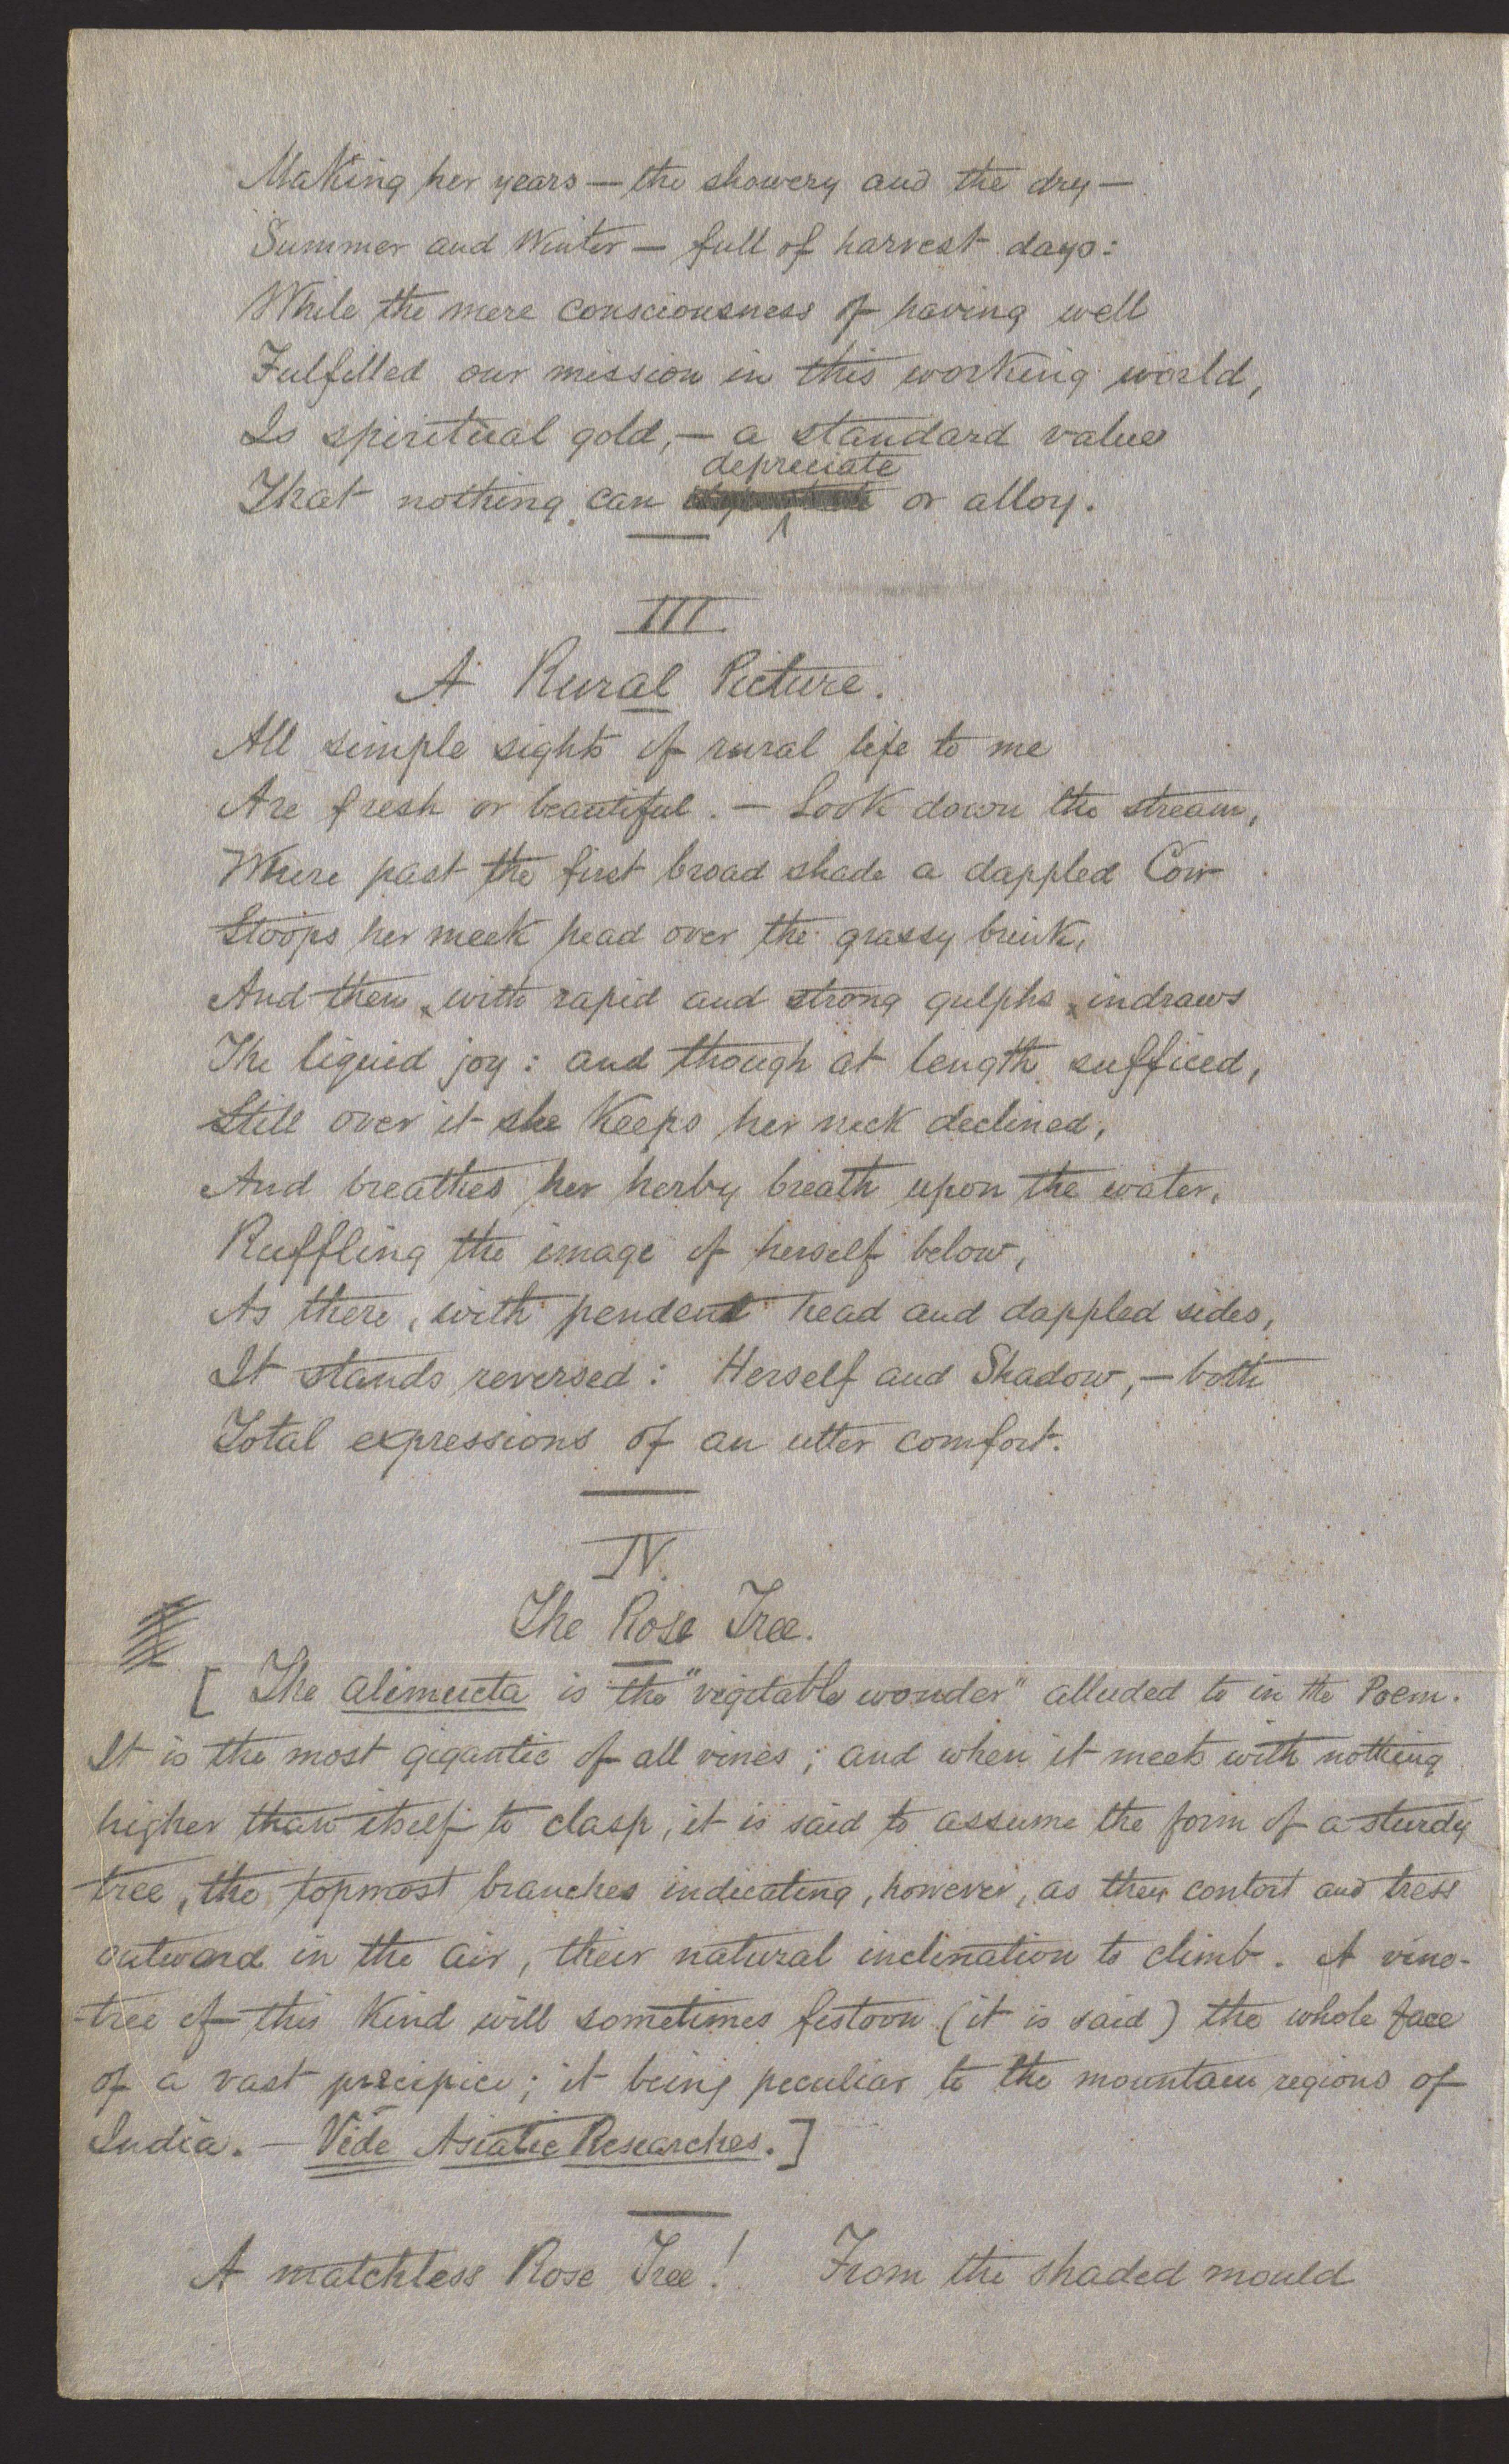 Making her years — the showery and the dry —
Summer and Winter — full of harvest days:
While the mere consciousness of having well
Fulfilled our mission in this working world,
Is spiritual gold, — a standard value
depreciate
That nothing can or alloy.
III.
A Rural Picture.
All simple sights of rural life to me
Are fresh or beautiful. — Look down the stream,
Where past the first broad shade a dappled Cow
Stoops her meek head over the grassy brink,
And then, with rapid and strong gulphs, indraws
The liquid joy: and though at length sufficed,
Still over it she keeps her neck declined,
And breathes her herby breath upon the water,
Ruffling the image of herself below,
As there, with pendent head and dappled sides,
It stands reversed: Herself and Shadow, — both
Total expressions of an utter comfort.
IV.
The Rose Tree.
[ The alimucta is the "vegitable wonder" alluded to in the Poem.
It is the most gigantic of all vines; and when it meets with nothing
higher than itself to clasp, it is said to assume the form of a sturdy
tree, the topmost branches indicating, however, as they contort and tress
outward in the air, their natural inclination to climb. A vine-
-tree of this kind will sometimes festoon (it is said) the whole face
of a vast precipice; it being peculiar to the mountain regions of
India. — Vide Asiatic Researches.]
A matchless Rose Tree! From the shaded mould